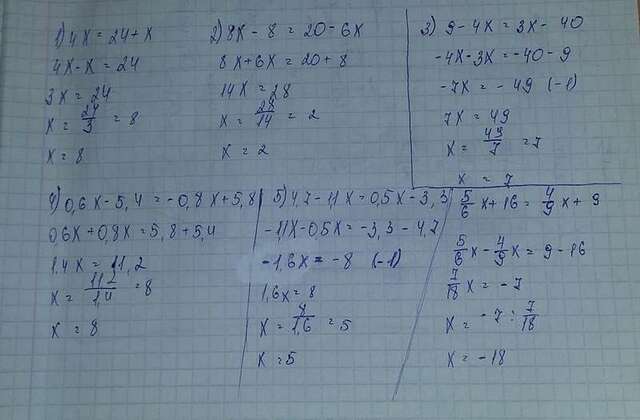 1) 4x = 24 + x
4x - x = 24
3x = 24
x = 24/3 = 8
x = 8
2) 8x - 8 = 20 - 6x
8x + 6x = 20 + 8
14x = 28
x = 28/14 = 2
x = 2
3) 9 - 4x = 3x - 40
-4x - 3x = -40 - 9
-7x = -49 (-1)
7x = 49
x = 49/7 = 7
x = 7
4) 0,6x - 5,4 = -0,8x + 5,8
0,6x + 0,8x = 5,8 + 5,4
1,4x = 11,2
x = 11,2/1,4 = 8
x = 8
5) 4,7 - 11x = 0,5x - 3,3
-11x - 0,5x = -3,3 - 4,7
-1,6x = -8 (-1)
1,6x = 8
x = 8/1,6 = 5
x = 5
5/6 x + 16 = 4/9 x + 9
5/6 x - 4/9 x = 9 - 16
7/18 x = -7
x = -7 : 7/18
x = -18